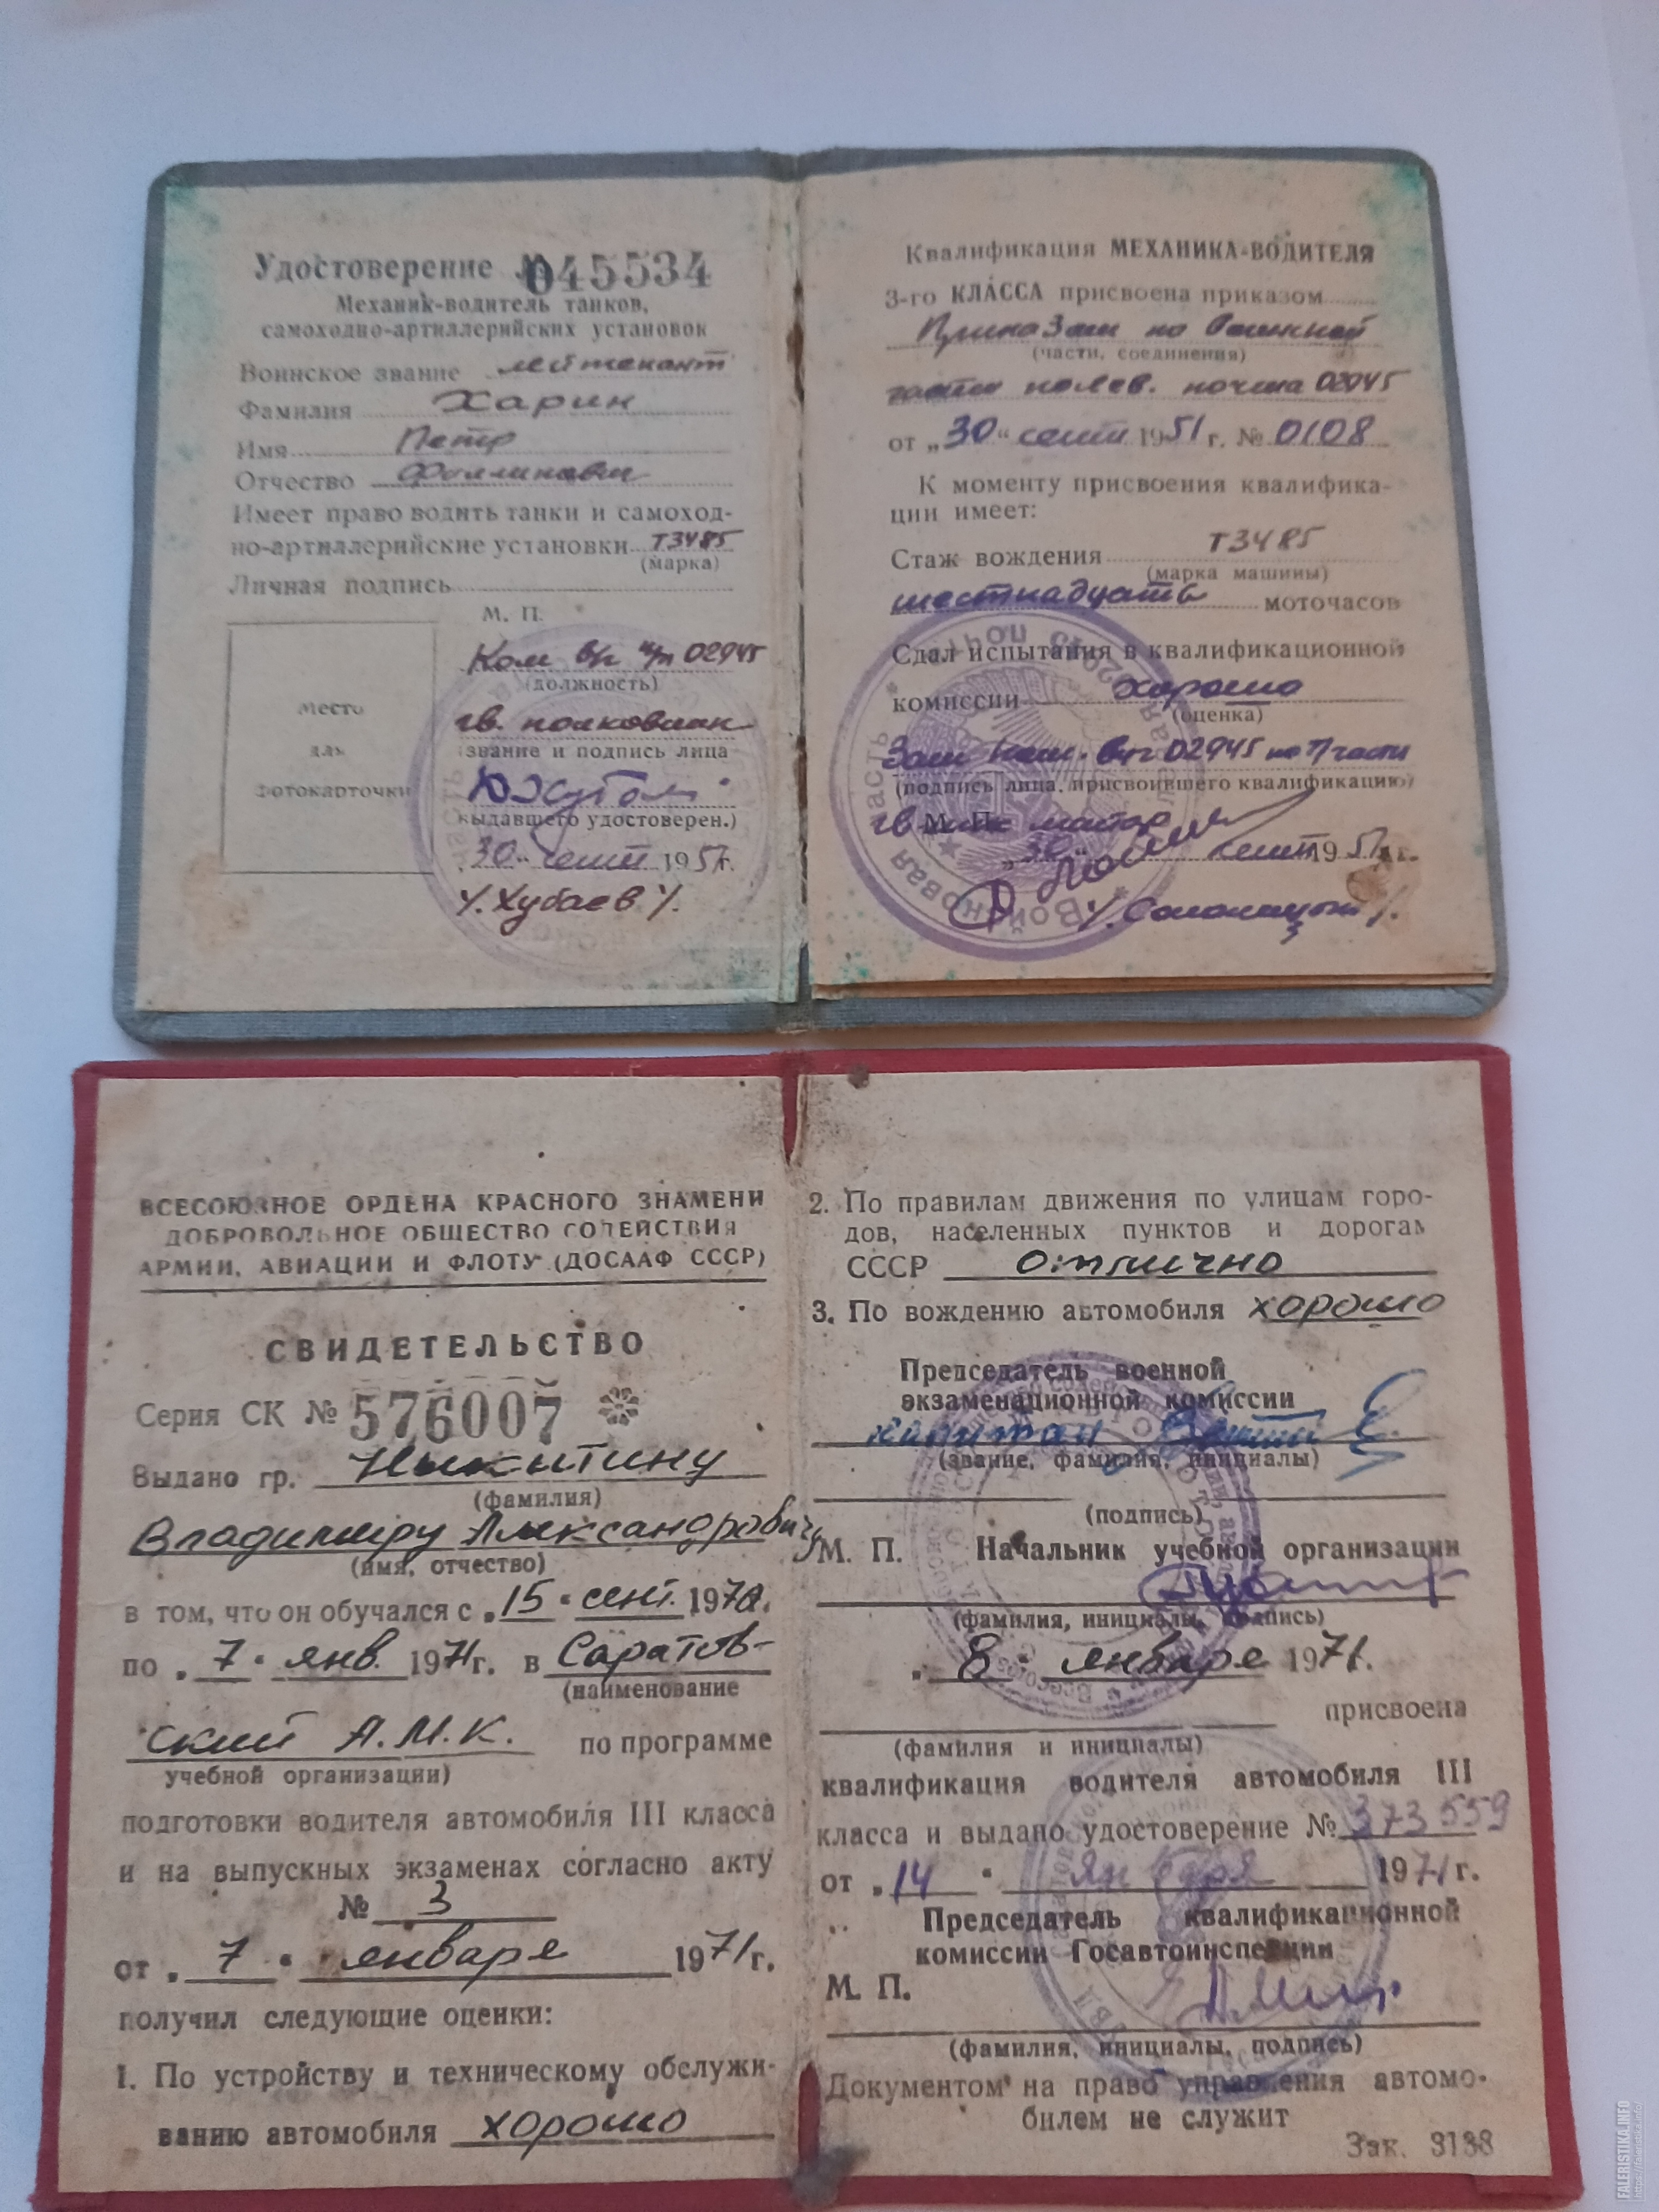 Удостоверение № 045534
Механик-водитель танков,
самоходно-артиллерийских установок
Воинское звание лейтенант
Фамилия Харин
Имя Петр
Отчество
Имеет право водить танки и самоход-
но-артиллерийские установки Т3485
(марка)
Личная подпись
М. П.
Место
для
фотокарточки
Ком в/ч п/п 02945
(должность)
гв. полковник
(звание и подпись лица
выдавшего удостоверен.)
30 " сент 1951г.
/. Хубаев /.
Квалификация МЕХАНИКА-ВОДИТЕЛЯ
3-го КЛАССА присвоена приказом
по
(части, соединения)
части полев. почта 02945
от „30" сент 1951 г. № 0108
К моменту присвоения квалифика-
ции имеет:
Стаж вождения Т3485
(марка машины)
шестнадцать моточасов
Сдал испытания в квалификационной
комиссии хорошо
(оценка)
Зам Ком. в/ч 02945 по Т части
(подпись лица, присвоившего квалификацию)
М. П.
гв майор
„30" сент 1951 г.
Войсковая часть
ВСЕСОЮЗНОЕ ОРДЕНА КРАСНОГО ЗНАМЕНИ
ДОБРОВОЛЬНОЕ ОБЩЕСТВО СОДЕЙСТВИЯ
АРМИИ, АВИАЦИИ И ФЛОТУ (ДОСААФ СССР)
СВИДЕТЕЛЬСТВО
Серия СК № 576007
Выдано гр. Никитину
(фамилия)
Владимиру Александровичу
(имя, отчество)
в том, что он обучался с „15" сент. 1970.
по „7" янв. 1971г. в Саратов-
(наименование
ский А.М.К. по программе
учебной организации)
подготовки водителя автомобиля III класса
и на выпускных экзаменах согласно акту
№ 3
от „7" января 1971г.
получил следующие оценки:
1. По устройству и техническому обслужи-
ванию автомобиля хорошо
2. По правилам движения по улицам горо-
дов, населенных пунктов и дорогам
СССР отлично
3. По вождению автомобиля хорошо
Председатель военной
экзаменационной комиссии
капитан
(звание, фамилия, инициалы)
(подпись)
М. П. Начальник учебной организации
(фамилия, инициалы, подпись)
„8" января 1971.
присвоена
(фамилия и инициалы)
квалификация водителя автомобиля III
класса и выдано удостоверение № 373559
от „14" января 1971г.
Председатель квалификационной
комиссии Госавтоинспекции
М. П.
(фамилия, инициалы, подпись)
Документом на право управления автомо-
билем не служит
Зак. 3138
FALERISTIKA.INFO
https://faleristika.info/